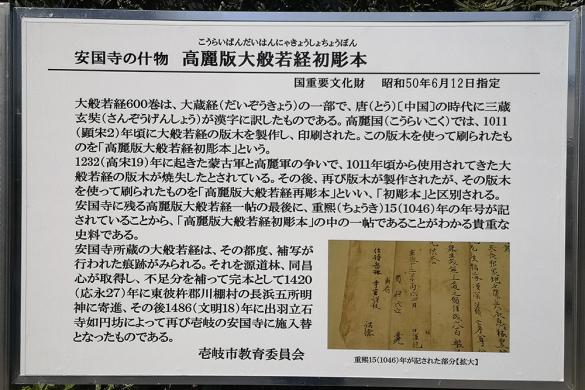 こうらいばんだいはんにゃきょうしょちょうぼん
安国寺の什物 高麗版大般若経初彫本
国重要文化財 昭和50年6月12日指定
大般若経600巻は、大蔵経(だいぞうきょう)の一部で、唐(とう)〔中国〕の時代に三蔵
玄奘(さんぞうげんしょう)が漢字に訳したものである。高麗国(こうらいこく)では、1011
(顕宋2)年頃に大般若経の版木を製作し、印刷された。この版木を使って刷られたも
のを「高麗版大般若経初彫本」という。
1232(高宋19)年に起きた蒙古軍と高麗軍の争いで、1011年頃から使用されてきた大
般若経の版木が焼失したとされている。その後、再び版木が製作されたが、その版木
を使って刷られたものを「高麗版大般若経再彫本」といい、「初彫本」と区別される。
安国寺に残る高麗版大般若経一帖の最後に、重熙(ちょうき)15(1046)年の年号が記
されていることから、「高麗版大般若経初彫本」の中の一帖であることがわかる貴重な
史料である。
安国寺所蔵の大般若経は、その都度、補写が
行われた痕跡がみられる。それを源道林、同昌
心が取得し、不足分を補って完本として1420
(応永27)年に東彼杵郡川棚村の長浜五所明
神に寄進、その後1486(文明18)年に出羽立石
寺如円坊によって再び壱岐の安国寺に施入替
となったものである。
壱岐市教育委員会
重熙15(1046)年が記された部分【拡大】